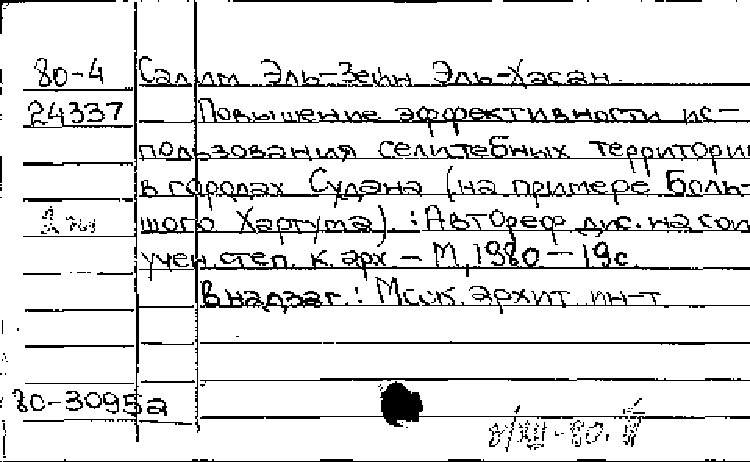 80-4 Салим Эль-Зейн Эль-Хасан.
24337 Повышение эффективности ис-
пользования селитебных территорий
в городах Судана (на примере Боль-
шого Хартума). : Автореф дис. на соис
учен. степ. к. арх - М, 1980 - 19с
В надзаг. : Моск. архит. ин-т
80-30952
8/XII-80.